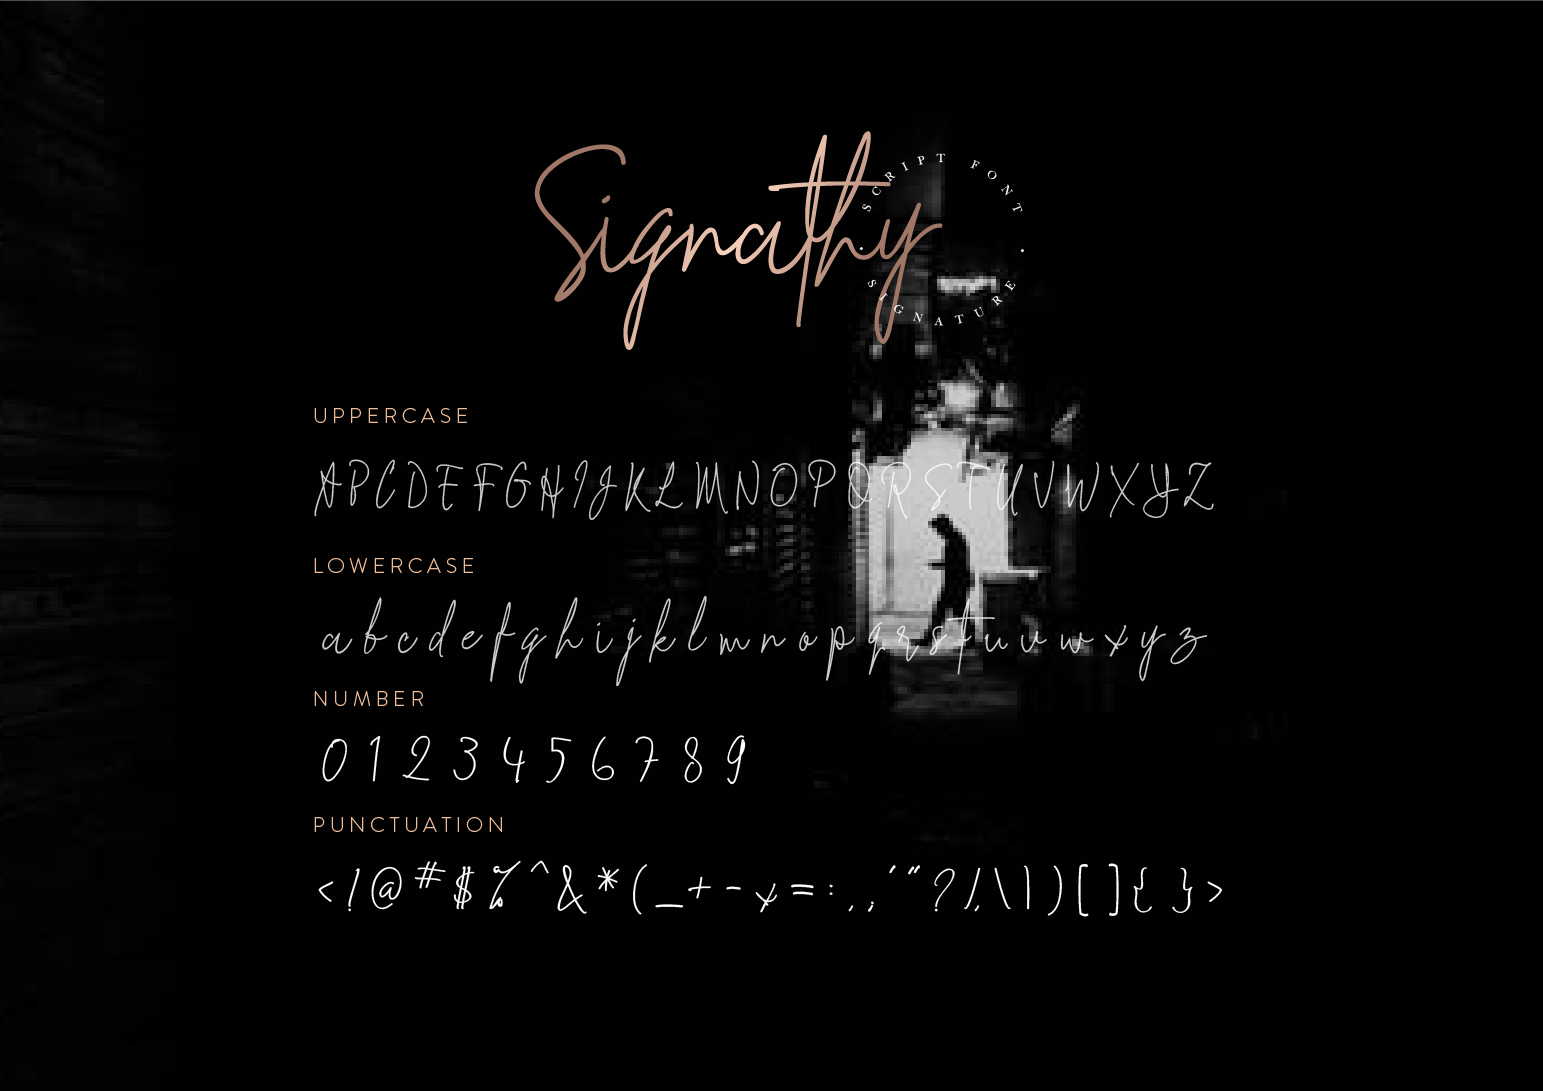 Signathy
SCRIPT FONT
SIGNATURE
UPPERCASE
ABCDEFGHIJKLMNOPQRSTUVWXYZ
LOWERCASE
a b c d e f g h i j k l m n o p q r s t u v w x y z
NUMBER
0 1 2 3 4 5 6 7 8 9
PUNCTUATION
< ! @ # $ % ^ & * ( _ + - x = : , ; ' " ? / . \ | ) [ ] { } >